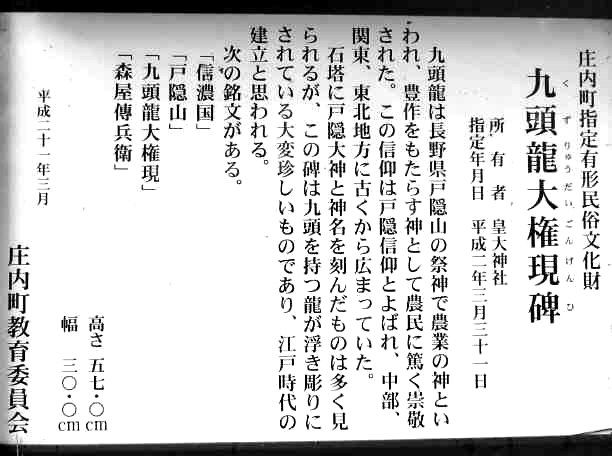 庄内町指定有形民俗文化財
くずりゅうだいごんげんひ
九頭龍大権現碑
所有者 皇大神社
指定年月日 平成二年三月三十一日
九頭龍は長野県戸隠山の祭神で農業の神とい
われ、豊作をもたらす神として農民に篤く崇敬
された。この信仰は戸隠信仰とよばれ、中部、
関東、東北地方に古くから広まっていた。
石塔に戸隠大神と神名を刻んだものは多く見
られるが、この碑は九頭を持つ龍が浮き彫りに
されている大変珍しいものであり、江戸時代の
建立と思われる。
次の銘文がある。
「信濃国」
「戸隠山」
「九頭龍大権現」
「森屋傳兵衛」
高さ 五七・〇cm
幅 三〇・〇cm
平成二十一年三月
庄内町教育委員会